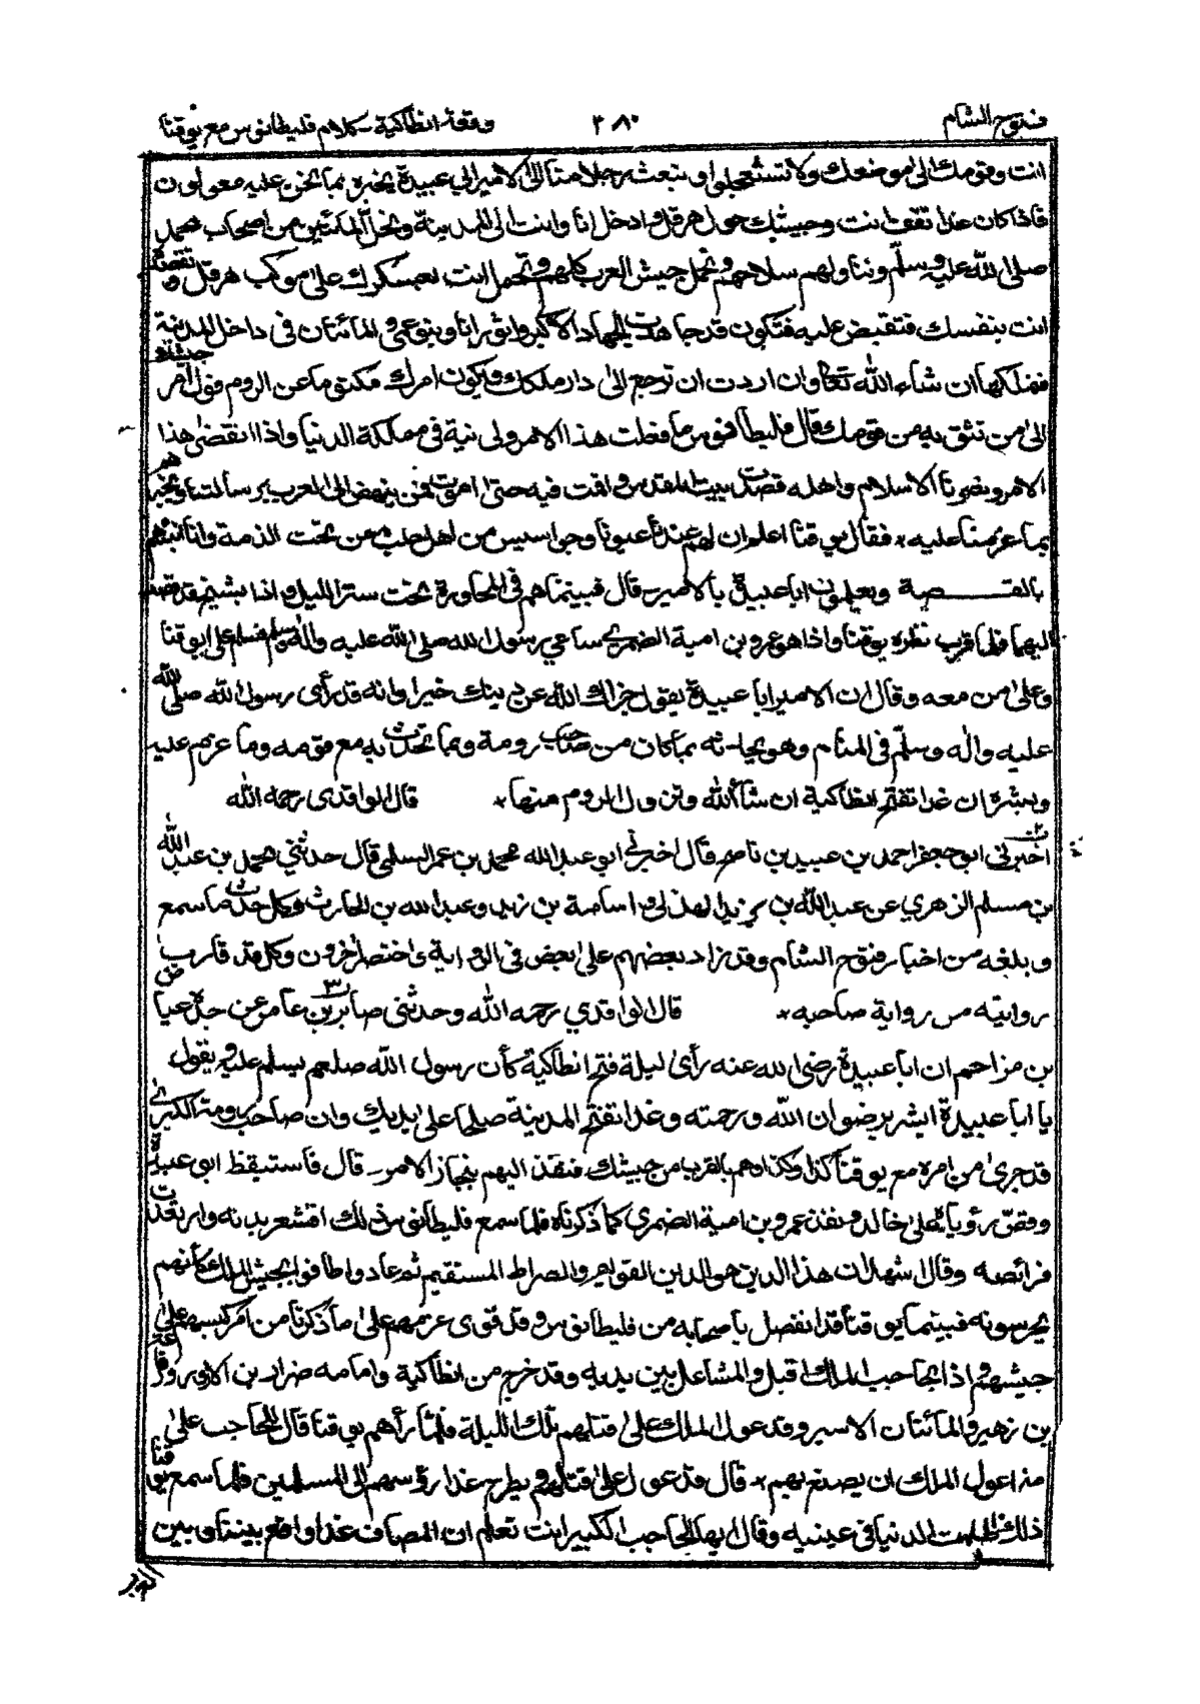 فتوح الشام ٢٨٠ وقعة انطاكية - كلام فليطانوس مع يوقنا
انت وقومك الى موضعك ولا تستعجلوا ونبعث رجلا منا الى الامير ابي عبيدة يخبره بما نحن عليه معولون
فاذا كان غدا تقف انت وجيشك حول هرقل وادخل انا وانت الى المدينة ونخل المأتين من اصحاب محمد
صلى الله عليه وسلم ونناولهم سلاحهم ونحمل جيش العرب كلهم وتحمل انت بعسكرك على موكب هرقل وتقصد
انت بنفسك فتقبض عليه فتكون قد جاهدت الجهاد الاكبر واثور انا وبنو عمي والمأتان في داخل المدينة
فنملكها ان شاء الله تعالى وان اردت ان ترجع الى دار ملكك ويكون امرك مكتوما عن الروم فول امر جيشك
الى من تثق به من قومك قال فليطانوس ما فعلت هذا الامر ولى نية في مملكة الدنيا واذا انقضى هذا
الامر ونصرنا الاسلام واهله قصدت بيت المقدس واقمت فيه حتى اموت فمن ينهض الى العرب برسالتنا ويخبرهم
بما عزمنا عليه * فقال يوقنا اعلم ان لهم عندنا عيونا وجواسيس من اهل حلب ممن تحت الذمة وانا انبئهم
بالقصة ويعلمون ابا عبيدة بالامر قال فبينما هم في المحاورة تحت ستر الليل واذا بشيخ قد قصد
اليهما فلما قرب نظره يوقنا واذا هو عمرو بن امية الضمري ساعي رسول الله صلى الله عليه واله وسلم فسلم على يوقنا
وعلى من معه وقال ان الامير ابا عبيدة يقول جزاك الله عن دينك خيرا وانه قد رأى رسول الله صلى الله
عليه واله وسلم في المنام وهو يحدثه بما كان من صاحب رومة وبما تحدث به مع قومه وما عزم عليه
وبشره ان غدا تفتح انطاكية ان شاء الله وتزول الروم منها * قال الواقدى رحمه الله
اخبرني ابو جعفر احمد بن عبيد بن ناصح قال اخبرني ابو عبد الله محمد بن عمر السلمي قال حدثني محمد بن عبد الله
بن مسلم الزهري عن عبد الله بن يزيد الهذلي و اسامة بن زيد وعبد الله بن الحارث وكل حدث ما سمع
وبلغه من اخبار فتوح الشام وقد زاد بعضهم على بعض في الرواية واختصر اخرون وكل قد قارب
روايته من رواية صاحبه * قال الواقدي رحمه الله وحدثنى صابر بن عامر عن جده عياض
بن مزاحم ان ابا عبيدة رضى الله عنه رأى ليلة فتح انطاكية كأن رسول الله صلعم يسلم عليه ويقول
يا ابا عبيدة ابشر برضوان الله ورحمته وغدا تفتح المدينة صلحا على يديك وان صاحب رومة الكبرى
قد جرى من امره مع يوقنا كذا وكذا وهم بالقرب من جيشك فنفذ اليهم بنجاز الامر - قال فاستيقظ ابو عبيدة
وقص رؤياه على خالد ونفذ عمرو بن امية الضمري كما ذكرناه فلما سمع فليطانوس ذلك اقشعر بدنه وارتعدت
فرائصه وقال اشهد ان هذا الدين هو الدين القويم والصراط المستقيم ثم عاد واطافوا بجيش الملك كأنهم
يحرسونه فبينما يوقنا قد انفصل باصحابه من فليطانوس وقد قوى عزمهم على ما ذكرنا من امر كبسهم على
جيشهم واذا بحاجب الملك اقبل والمشاعل بين يديه وقد خرج من انطاكية وامامه ضرار بن الازور ورفاعة
بن زهير والمأتان الاسير وقد عول الملك على قتلهم تلك الليلة فلما رأهم يوقنا قال للحاجب على
ماذا عول الملك ان يصنع بهم * قال قد عول على قتلهم ويطرح غدا رؤسهم الى المسلمين فلما سمع يوقنا
ذلك ظلمت الدنيا في عينيه وقال ايها الحاجب الكبير انت تعلم ان المصاف غدا واقع بيننا وبين